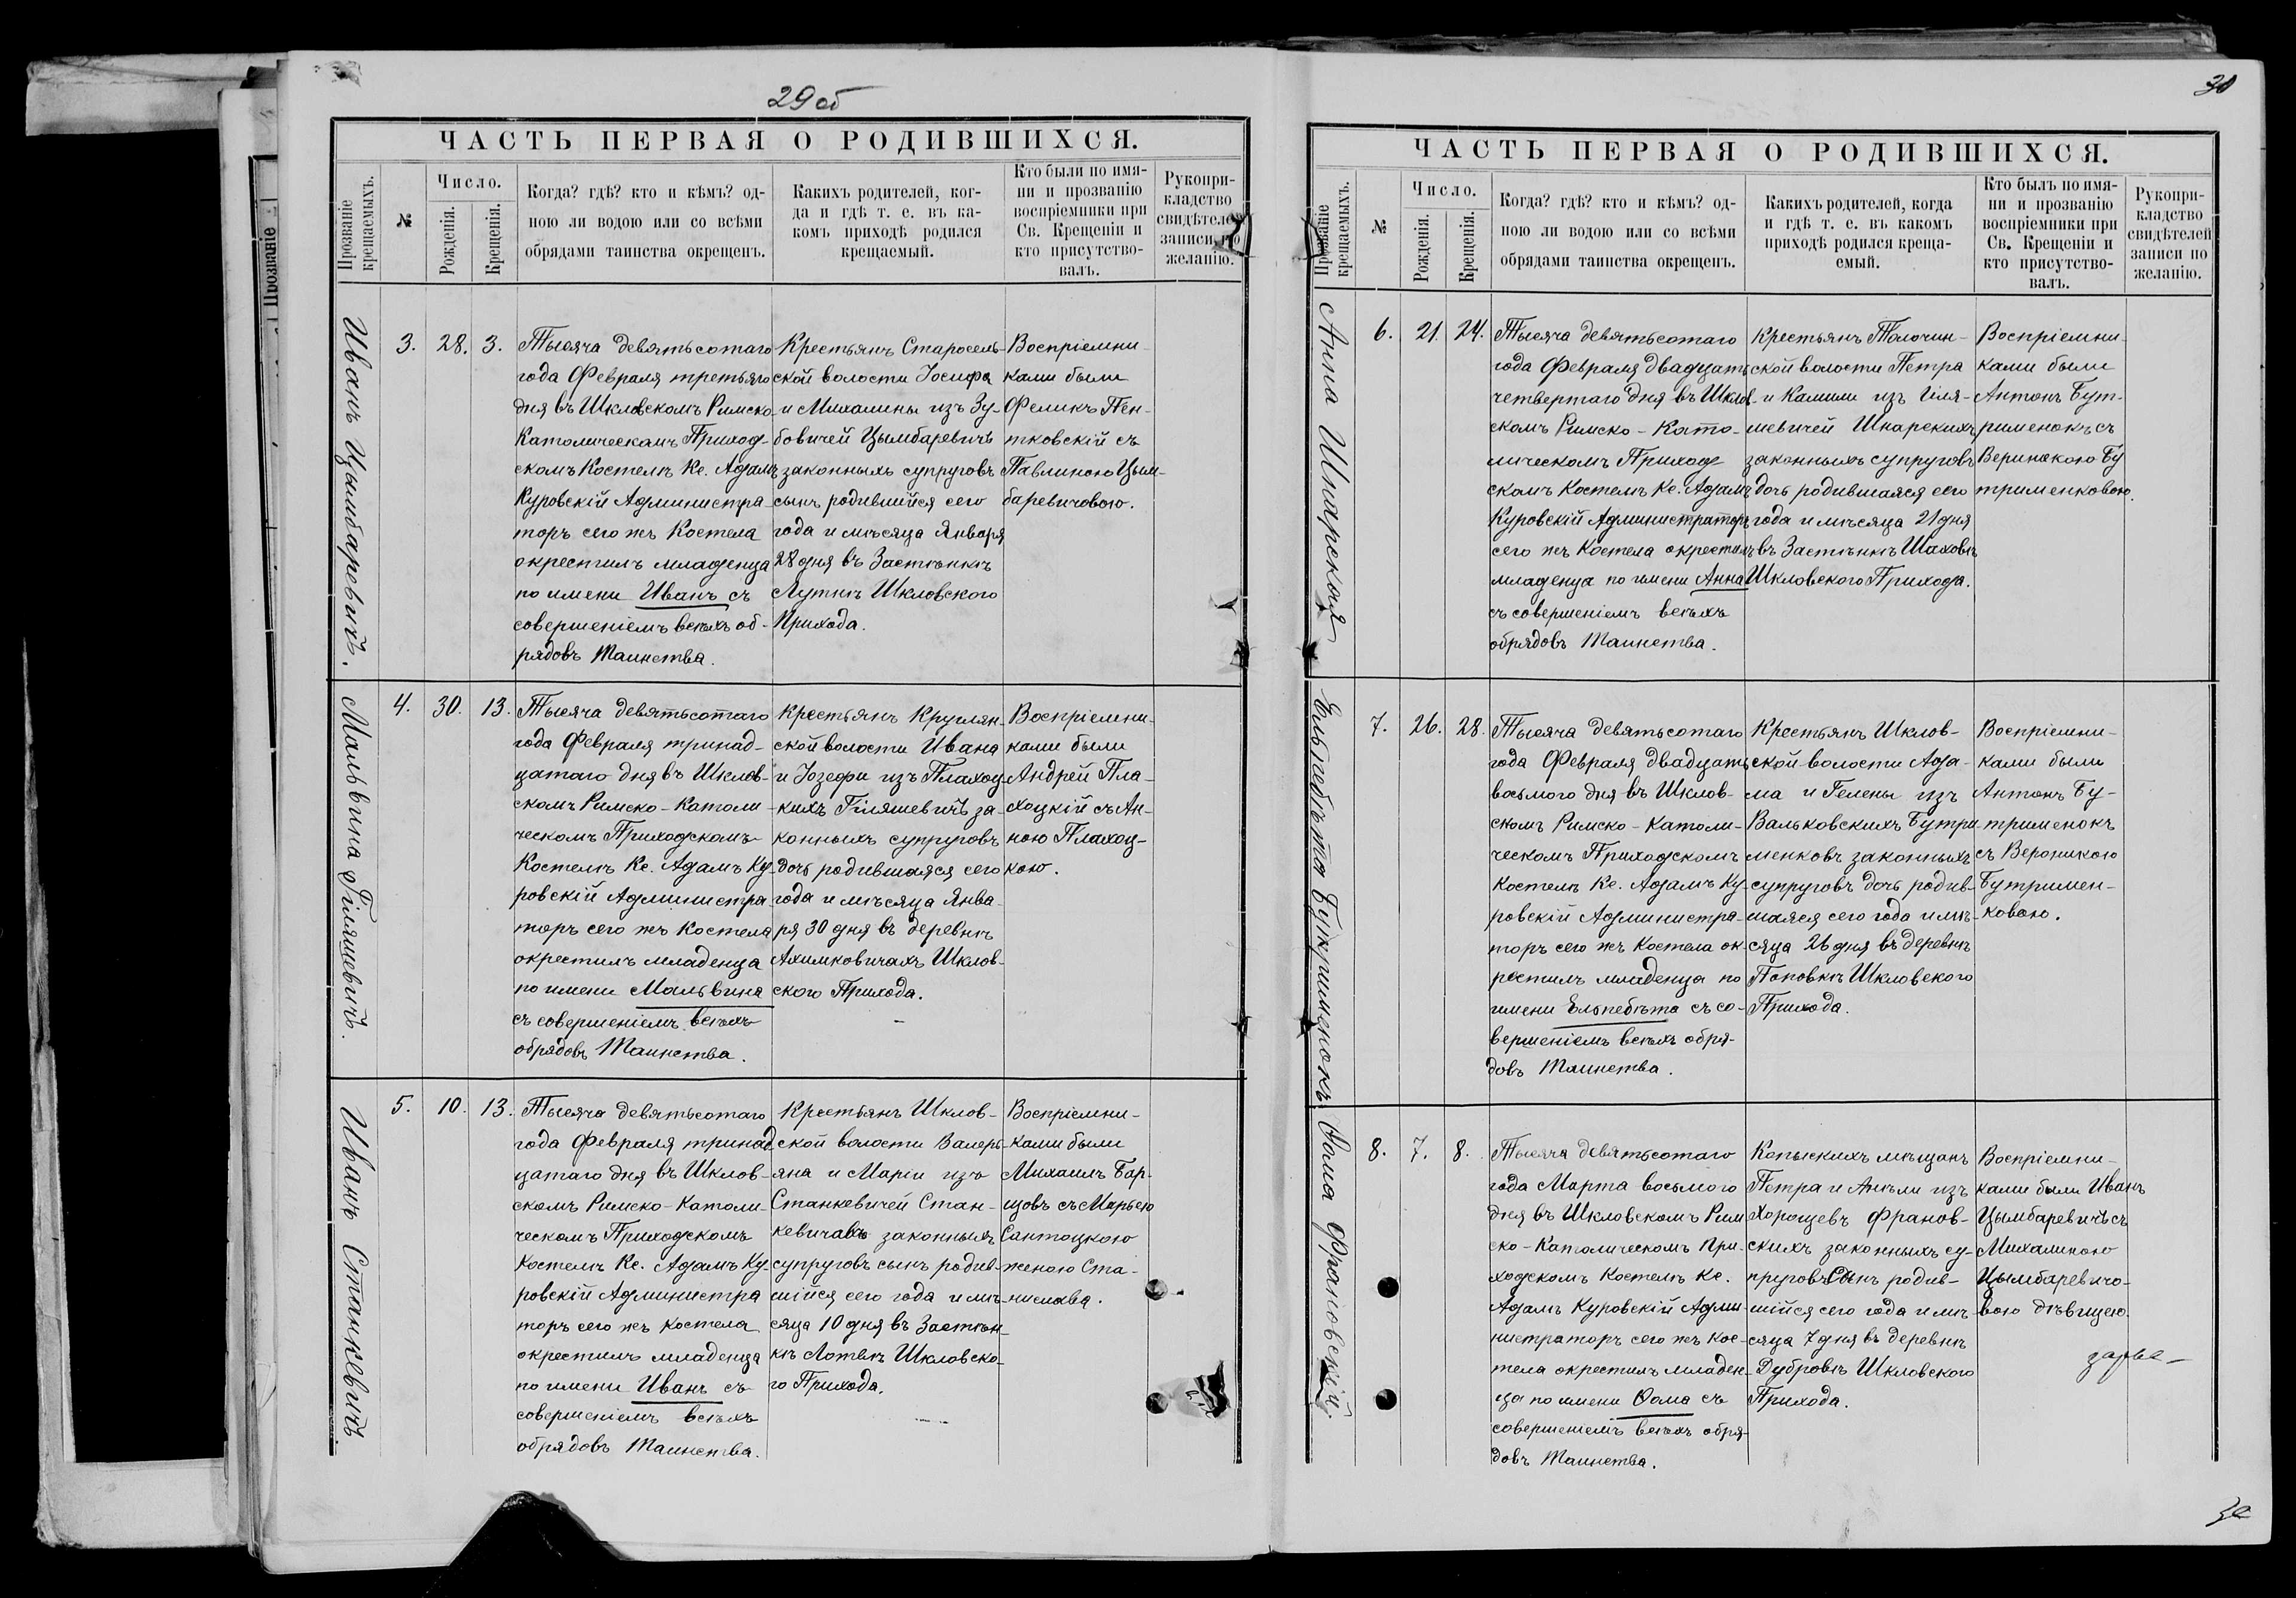 29 об
ЧАСТЬ ПЕРВАЯ О РОДИВШИХСЯ.
Прозваніе крещаемыхъ.
№
Число.
Рожденія.
Крещенія.
Когда? гдѣ? кто и кѣмъ? од-
ною ли водою или со всѣми
обрядами таинства окрещенъ.
Какихъ родителей, ког-
да и гдѣ т. е. въ ка-
комъ приходѣ родился
крещаемый.
Кто были по имя-
ни и прозванію
воспріемники при
Св. Крещеніи и
кто присутство-
валъ.
Рукопри-
кладство
свидѣтелей
записи по
желанію.
Иванъ Цымбаревичъ.
3. 28. 3.
Тысяча девятьсотаго
года Февраля третьяго
дня въ Шкловскомъ Римско-
Католическомъ Приход-
скомъ Костелѣ Кс. Адамъ
Куровскій Администра-
торъ сего жъ Костела
окрестилъ младенца
по имени Иванъ съ
совершеніемъ всѣхъ об-
рядовъ Таинства.
Крестьянъ Старосель-
ской волости Іосифа
и Михалины изъ Зу-
бовичей Цымбаревичъ
законныхъ супруговъ
сынъ родившійся сего
года и мѣсяца Января
28 дня въ Застѣнкѣ
Лутнѣ Шкловского
Прихода.
Воспріемни-
ками были
Феликъ Пен-
тковскій съ
Павлиною Цым-
баревичовою.
Мальвина Гіляшевичъ.
4. 30. 13.
Тысяча девятьсотаго
года Февраля тринад-
цатаго дня въ Шклов-
скомъ Римско-Католи-
ческомъ Приходскомъ
Костелѣ Кс. Адамъ Ку-
ровскій Администра-
торъ сего жъ Костела
окрестилъ младенца
по имени Мальвина
съ совершеніемъ всѣхъ
обрядовъ Таинства.
Крестьянъ Круглян-
ской волости Ивана
и Іозефы изъ Плахоц-
кихъ Гіляшевичъ за-
конныхъ супруговъ
дочь родившаяся сего
года и мѣсяца Янва-
ря 30 дня въ деревнѣ
Ахимковичахъ Шклов-
ского Прихода.
Воспріемни-
ками были
Андрей Пла-
хоцкій съ Ан-
ною Плахоц-
кою.
Иванъ Станкевичъ
5. 10. 13.
Тысяча девятьсотаго
года Февраля тринад
цатаго дня въ Шклов-
скомъ Римско-Католи-
ческомъ Приходскомъ
Костелѣ Кс. Адамъ Ку-
ровскій Администра
торъ сего жъ Костела
окрестилъ младенца
по имени Иванъ съ
совершеніемъ всѣхъ
обрядовъ Таинства.
Крестьянъ Шклов-
ской волости Валерь-
яна и Маріи изъ
Станкевичей Стан-
кевичавъ законныхъ
супруговъ сынъ родив-
шійся сего года и мѣ-
сяца 10 дня въ Застѣн-
кѣ Лотвѣ Шкловско-
го Прихода.
Воспріемни-
ками были
Михаилъ Бар-
щовъ съ Марьею
Сантоцкою
женою Ста-
нислава.
30
ЧАСТЬ ПЕРВАЯ О РОДИВШИХСЯ.
Прозваніе крещаемыхъ.
№
Число.
Рожденія.
Крещенія.
Когда? гдѣ? кто и кѣмъ? од-
ною ли водою или со всѣми
обрядами таинства окрещенъ.
Какихъ родителей, когда
и гдѣ т. е. въ какомъ
приходѣ родился креща-
емый.
Кто былъ по имя-
ни и прозванію
воспріемники при
Св. Крещеніи и
кто присутство-
валъ.
Рукопри-
кладство
свидѣтелей
записи по
желанію.
Анна Шнарская
6. 21. 24.
Тысяча девятьсотаго
года Февраля двадцать
четвертаго дня въ Шклов-
скомъ Римско-Като-
лическомъ Приход
скомъ Костелѣ Кс. Адамъ
Куровскій Администраторъ
сего жъ Костела окрестилъ
младенца по имени Анна
съ совершеніемъ всѣхъ
обрядовъ Таинства.
Крестьянъ Толочин-
ской волости Петра
и Камили изъ Гіля-
шевичей Шнарскихъ
законныхъ супруговъ
дочь родившаяся сего
года и мѣсяца 21 дня
въ Застѣнкѣ Шаховѣ
Шкловского Прихода.
Воспріемни-
ками были
Антонъ Бут-
рименокъ съ
Веринакою Бу
трименковою.
Ельсбѣта Бутрименокъ
7. 26. 28.
Тысяча девятьсотаго
года Февраля двадцать
восьмого дня въ Шклов-
скомъ Римско-Католи-
ческомъ Приходскомъ
Костелѣ Кс. Адамъ Ку-
ровскій Администра-
торъ сего жъ Костела ок-
рестилъ младенца по
имени Ельсбѣта съ со-
вершеніемъ всѣхъ обря-
довъ Таинства.
Крестьянъ Шклов-
ской волости Ада-
ма и Гелены изъ
Вальковскихъ Бутри-
менковъ законныхъ
супруговъ дочь родив-
шаяся сего года и мѣ-
сяца 26 дня въ деревнѣ
Поповкѣ Шкловского
Прихода.
Воспріемни-
ками были
Антонъ Бу-
трименокъ
съ Вероникою
Бутримен-
ковою.
Ѳома Франовскій.
8. 7. 8.
Тысяча девятьсотаго
года Марта восьмого
дня въ Шкловскомъ Рим
ско-Католическомъ При-
ходскомъ Костелѣ Кс.
Адамъ Куровскій Адми-
нистраторъ сего жъ Кос-
тела окрестилъ младен-
ца по имени Ѳома съ
совершеніемъ всѣхъ обря-
довъ Таинства.
Копыскихъ мѣщанъ
Петра и Анѣли изъ
Хорощевъ Франов-
скихъ законныхъ су-
пруговъ Сынъ родив-
шійся сего года и мѣ-
сяца 7 дня въ деревнѣ
Дубровѣ Шкловского
Прихода.
Воспріемни-
ками были Иванъ
Цымбаревичъ съ
Михалиною
Цымбаревичо-
вою дѣвицею.